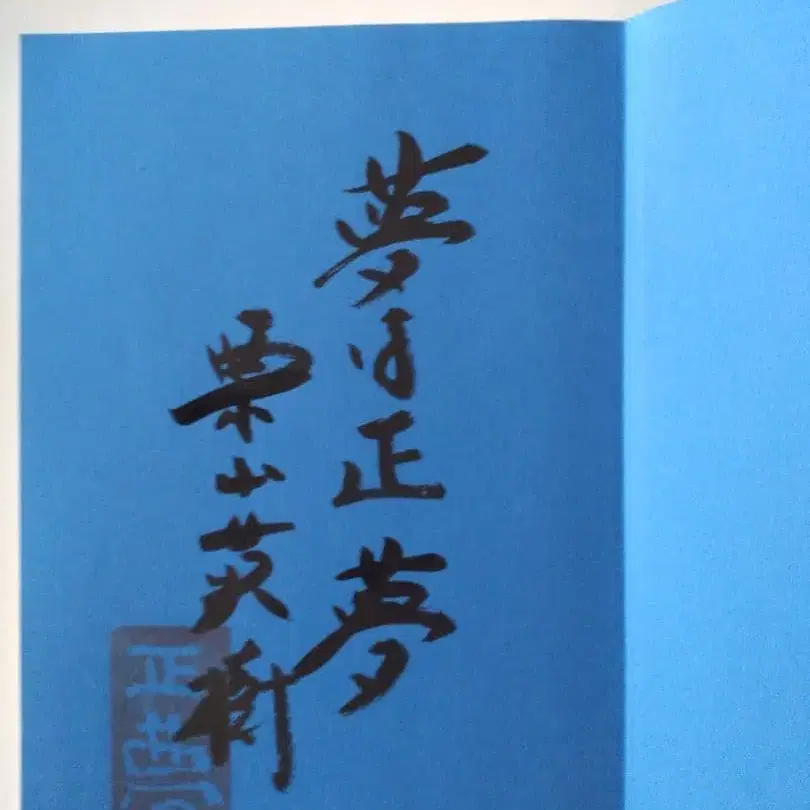 夢は正夢
栗山英樹